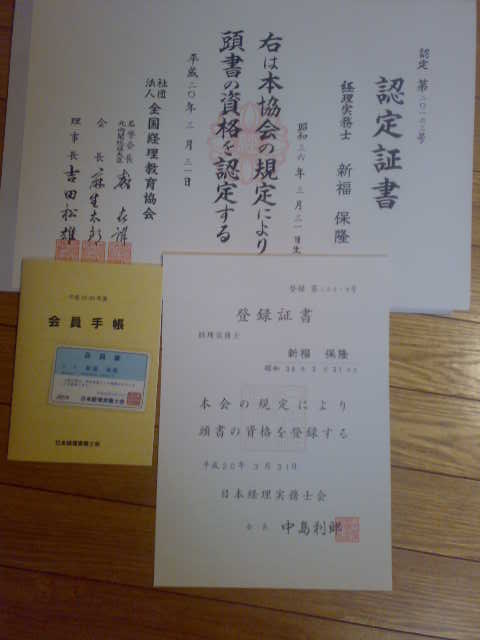 認定証書
経理実務士
新福 保隆
昭和三六年三月三一日生
右は本協会の規定により
頭書の資格を認定する
平成二〇年三月三一日
社団法人 全国経理教育協会
会長 麻生太郎
理事長 吉田松雄
会員手帳
会員章
日本経理実務士会
日本経理実務士会
登録証書
経理実務士
新福 保隆
昭和36年3月31日生
本会の規定により
頭書の資格を登録する
平成20年3月31日
日本経理実務士会
会長 中島利郎